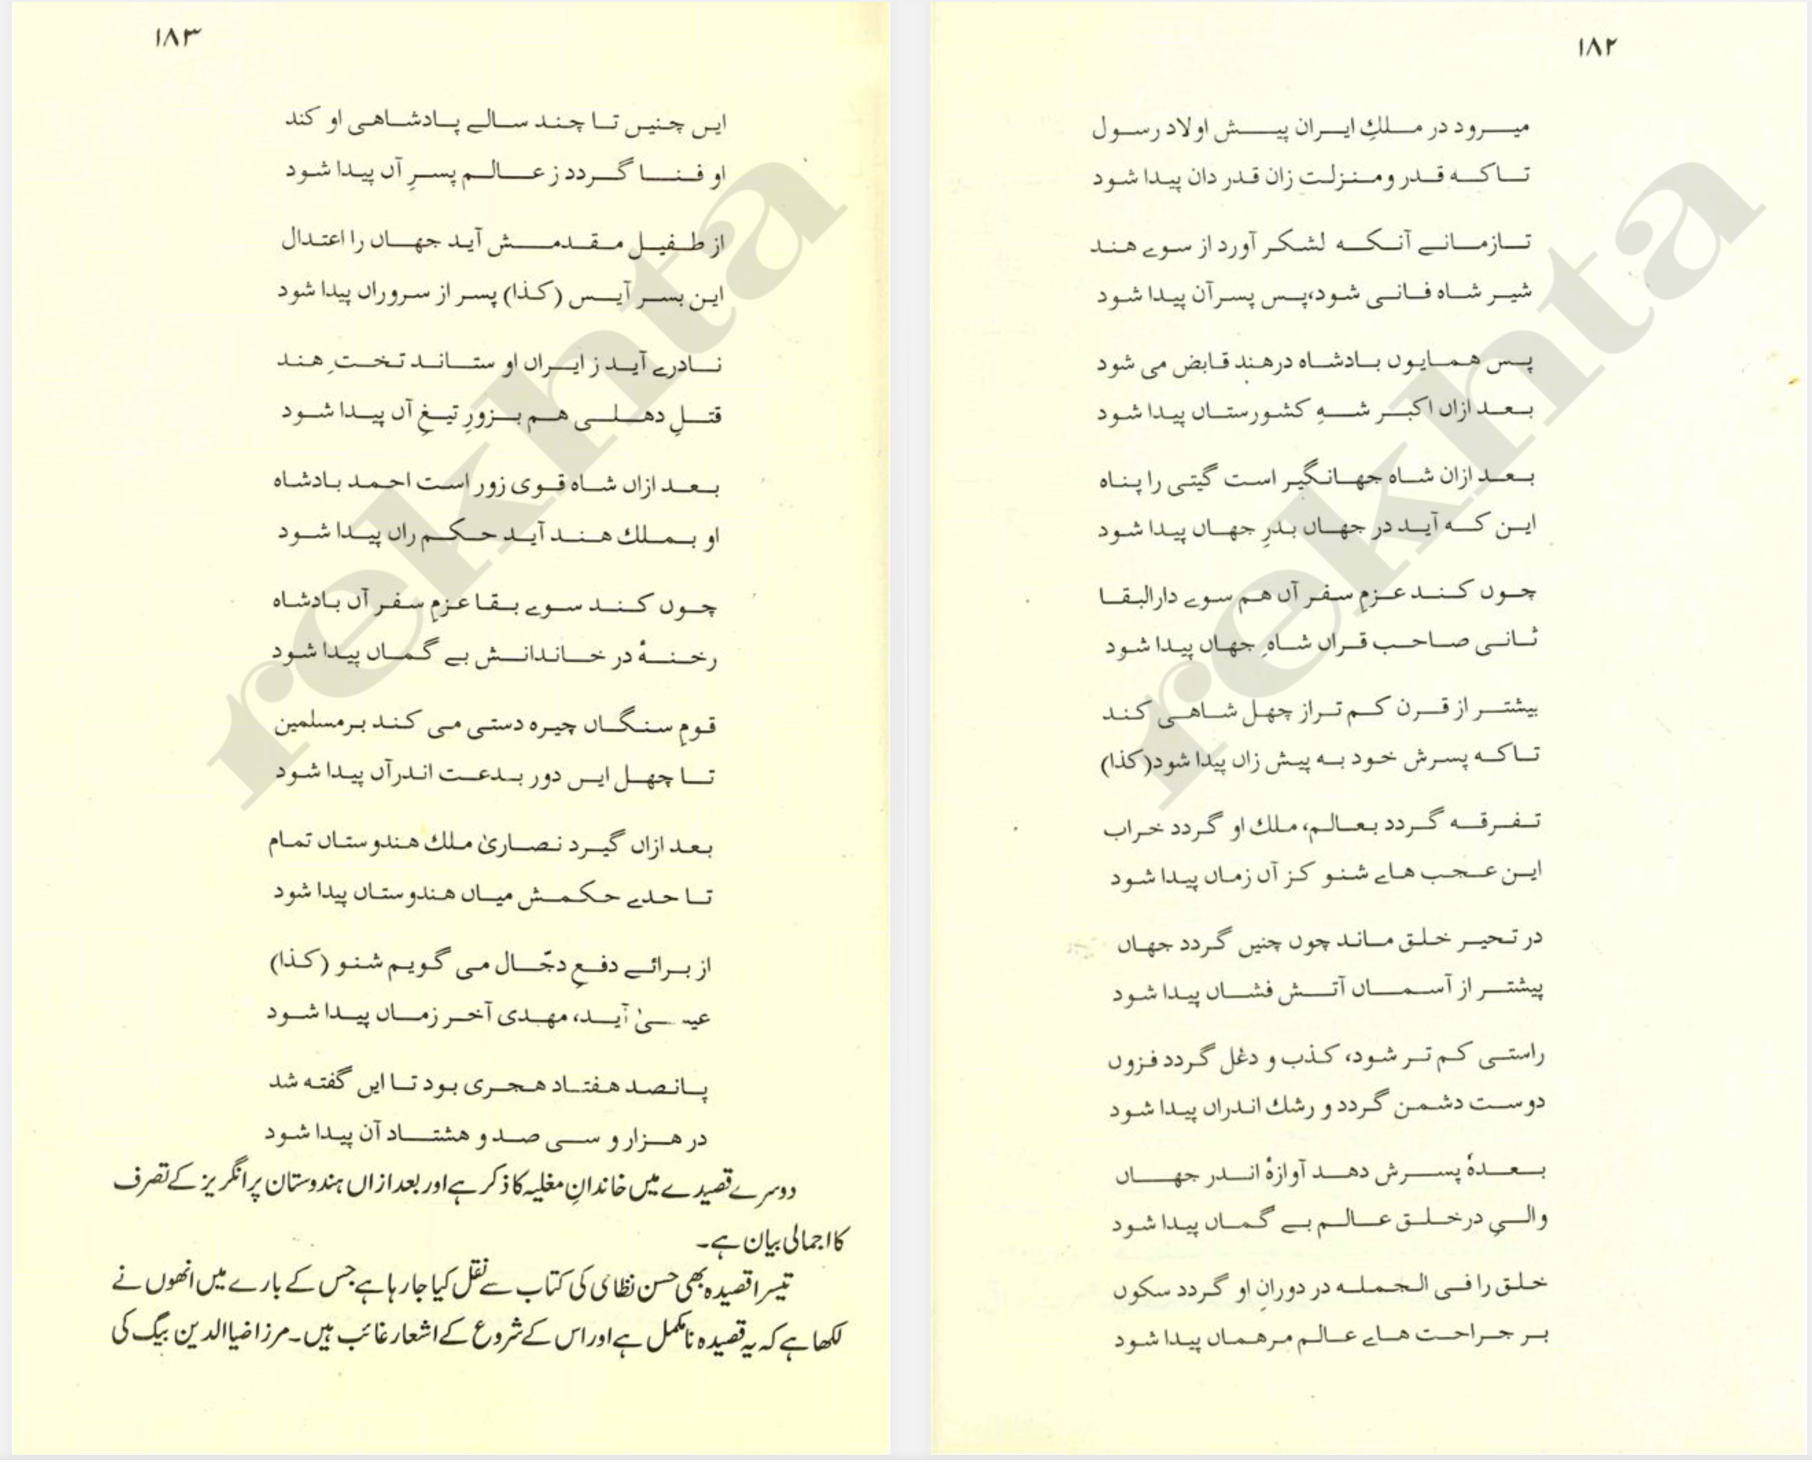 ۱۸۲
میرود در ملکِ ایران پیش اولاد رسول
تاکہ قدر و منزلت زان قدر دان پیدا شود
تازمانے آنکہ لشکر آورد از سوے ہند
شیر شاہ فانی شود، پس پسرآن پیدا شود
پس ہمایوں بادشاہ درہند قابض می شود
بعد ازاں اکبر شہِ کشورستاں پیدا شود
بعد ازان شاہ جہانگیر است گیتی را پناہ
این کہ آید در جہاں بدرِ جہاں پیدا شود
چوں کند عزمِ سفر آں ہم سوے دارالبقا
ثانی صاحب قراں شاہِ جہاں پیدا شود
بیشتر از قرن کم تر از چہل شاہی کند
تاکہ پسرش خود بہ پیش زاں پیدا شود (کذا)
تفرقہ گردد بعالم، ملك او گردد خراب
این عجب ہاے شنو کز آں زماں پیدا شود
در تحیر خلق ماند چوں چنیں گردد جہاں
پیشتر از آسماں آتش فشاں پیدا شود
راستی کم تر شود، کذب و دغل گردد فزوں
دوست دشمن گردد و رشك اندراں پیدا شود
بعدہٗ پسرش دہد آوازۂ اندر جہاں
والیِ درخلق عالم بے گماں پیدا شود
خلق را فی الجملہ در دورانِ او گردد سکوں
بر جراحت ہاے عالم مرہماں پیدا شود
۱۸۳
ایں چنیں تا چند سالے پادشاہی او کند
او فنا گردد ز عالم پسرِ آں پیدا شود
از طفیل مقدمش آید جہاں را اعتدال
این بسر آیس (کذا) پسر از سروراں پیدا شود
نادرے آید ز ایراں او ستاند تختِ ہند
قتلِ دہلی ہم بزورِ تیغِ آں پیدا شود
بعد ازاں شاہ قوی زور است احمد بادشاہ
او بملك ہند آید حکم راں پیدا شود
چوں کند سوے بقا عزمِ سفر آں بادشاہ
رخنۂ در خاندانش بے گماں پیدا شود
قومِ سنگاں چیرہ دستی می کند برمسلمین
تا چہل ایں دور بدعت اندرآں پیدا شود
بعد ازاں گیرد نصاریٰ ملك ہندوستاں تمام
تا حدے حکمش میاں ہندوستاں پیدا شود
از برائے دفعِ دجّال می گویم شنو (کذا)
عیسیٰ آید، مہدی آخر زماں پیدا شود
پانصد ہفتاد ہجری بود تا ایں گفتہ شد
در ہزار و سی صد و ہشتاد آن پیدا شود
دوسرے قصیدے میں خاندانِ مغلیہ کا ذکر ہے اور بعد ازاں ہندوستان پر انگریز کے تصرف
کا اجمالی بیان ہے۔
تیسرا قصیدہ بھی حسن نظامی کی کتاب سے نقل کیا جا رہا ہے جس کے بارے میں انھوں نے
لکھا ہے کہ یہ قصیدہ نامکمل ہے اور اس کے شروع کے اشعار غائب ہیں۔ مرزا ضیا الدین بیگ کی
rekhta
rekhta